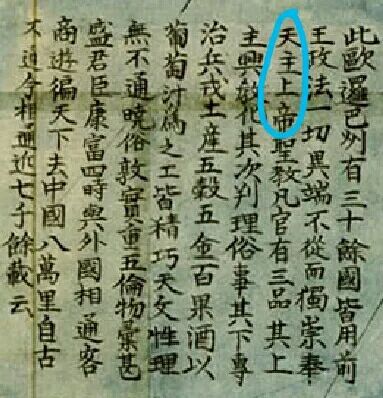 此歐邏巴州有三十餘國皆用前
王政法一切異端不從而獨崇奉
天主上帝聖教凡官有三品其上
主興教化其次判理俗事其下專
治兵戎土產五穀五金百果酒以
葡萄汁為之工皆精巧天文性理
無不通曉俗敦實重五倫物彙甚
盛君臣康富四時與外國相通客
商遊徧天下去中國八萬里自古
不通今相通近七十餘載云